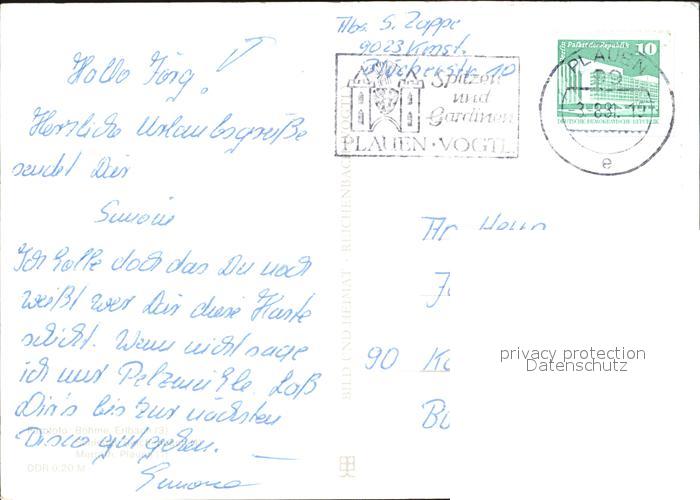 Hallo Jörg!
Herzliche Urlaubsgrüße
sendet Dir
Simone
Ich hoffe doch das Du noch
weißt wer Dir diese Karte
schickt. Wenn nicht sage
ich nur Pelzmühle. Laß
Dir's bis zur nächsten
Disco gut gehen.
Simone
DDR 0,20 M
BILD UND HEIMAT · REICHENBACH VOGTL
Abs. S. Zappe
9023
10
Spitzen
und
Gardinen
PLAUEN · VOGTL.
Berlin Palast der Republik 10
DEUTSCHE DEMOKRATISCHE REPUBLIK
PLAUEN
e
An Herrn
90
privacy protection
Datenschutz